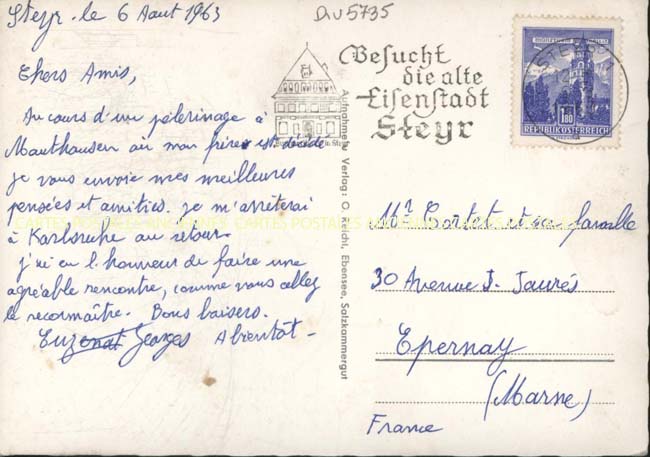 Steyr. le 6 Août 1963
DU5735
Chers Amis,
Au cours d'un pélerinage à
Mauthausen où mon frère est décédé
je vous envoie mes meilleures
pensées et amitiés. je m'arrêterai
à Karlsruhe au retour
j'ai eu l'honneur de faire une
agréable rencontre, comme vous allez
le reconnaître. Bons baisers.
Georges A bientôt -
Besucht
die alte
Eisenstadt
Steyr
REPUBLIK ÖSTERREICH
1.80
Aufnahme u. Verlag: O. Reichl, Ebensee, Salzkammergut
CARTES POSTALES ANCIENNES CARTES POSTALES
Mr Cortet et sa famille
30 Avenue J. Jaurés
Epernay
(Marne)
France